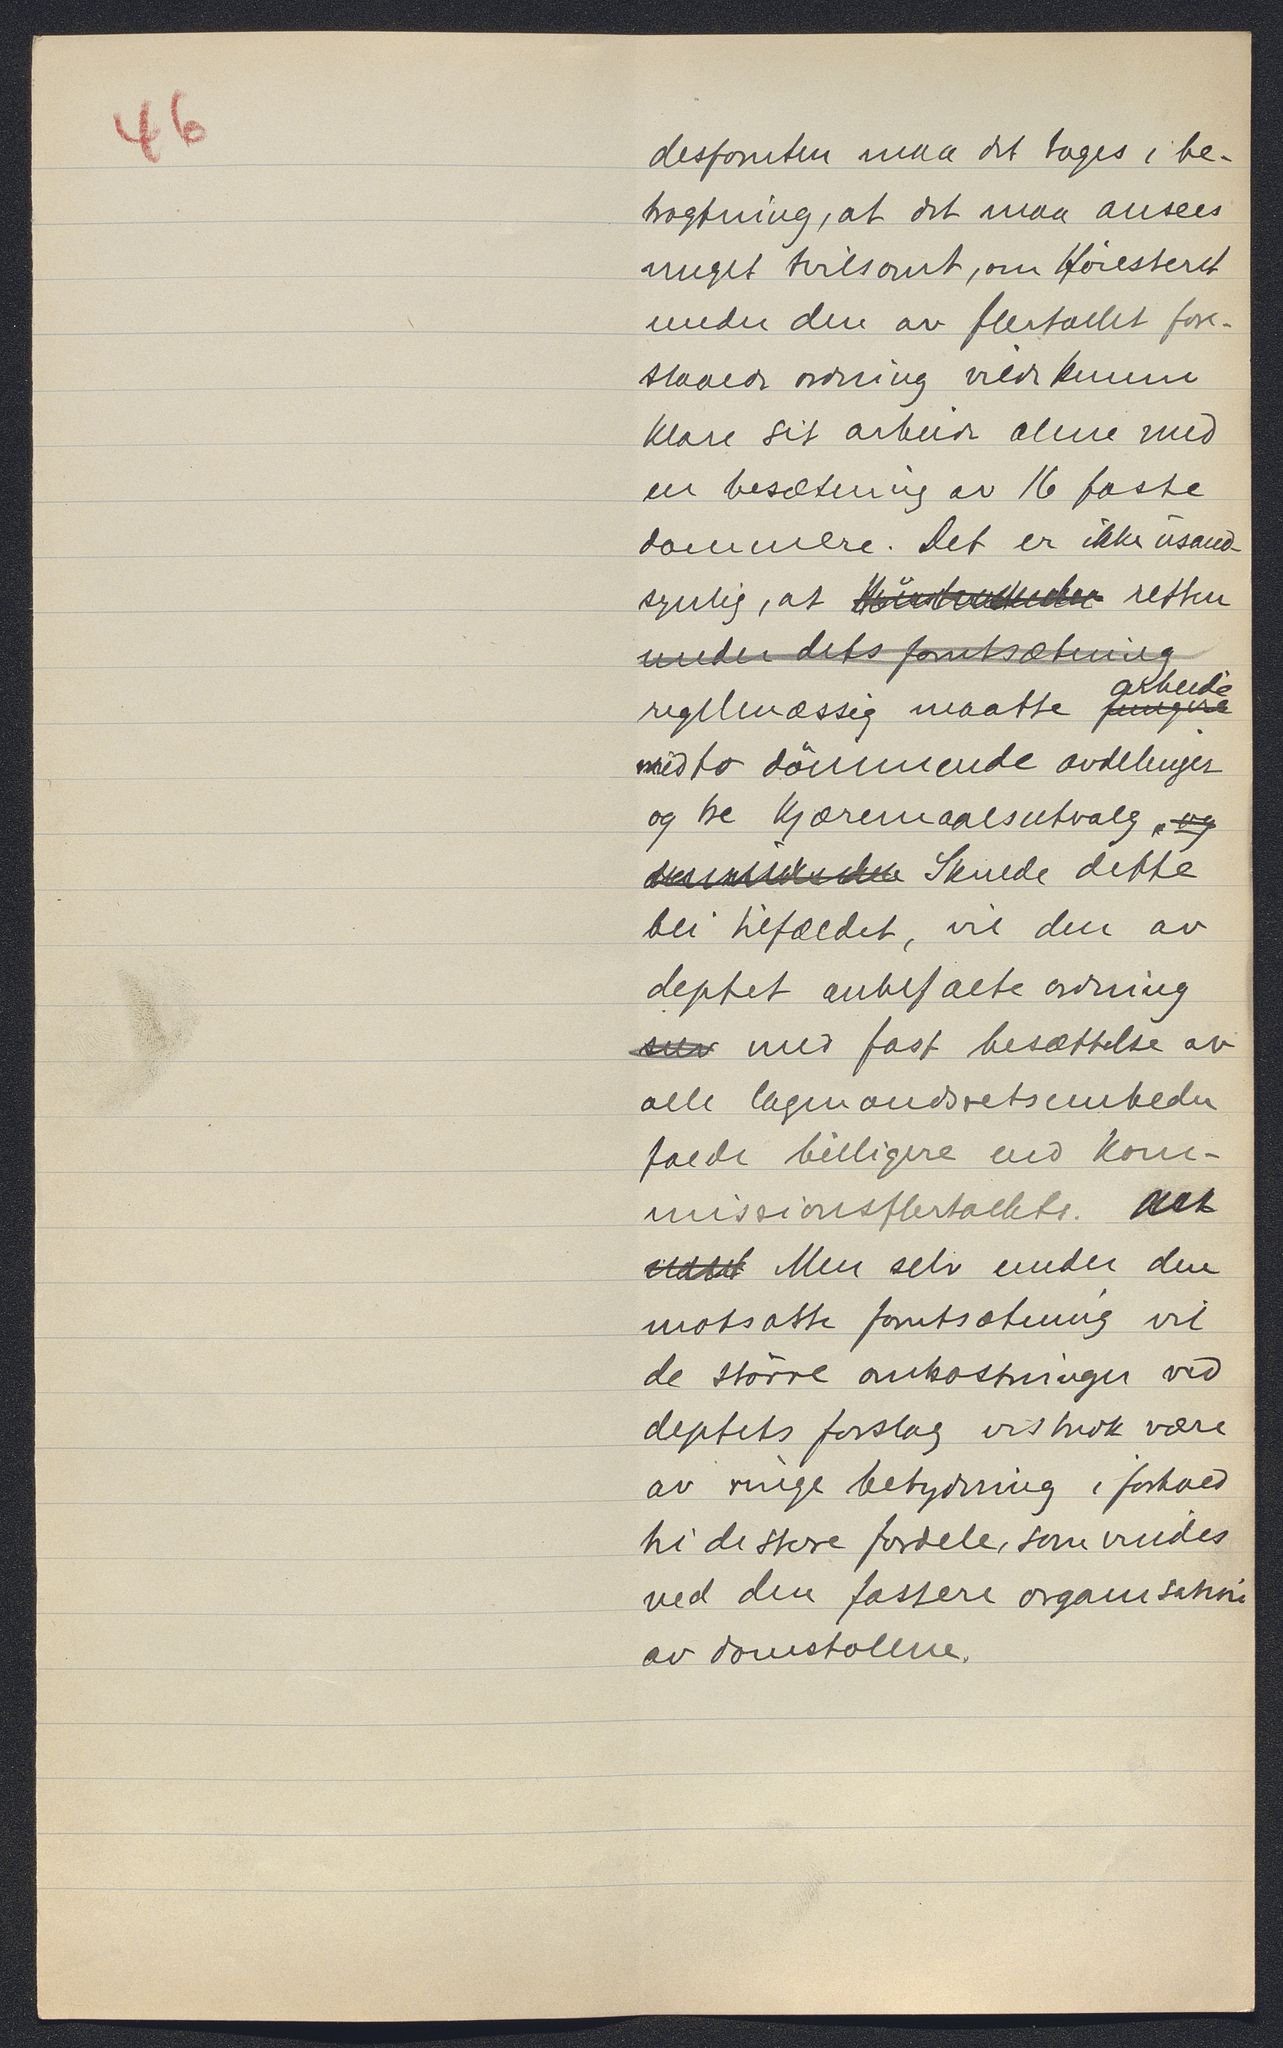 46
desforuten maa det tages i be-
tragtning, at det maa ansees
meget tvilsomt, om Höiesteret
under den av flertallet fore-
slaaede ordning vilde kunne
klare sit arbeide alene med
en besætning av 16 faste
dommere. Det er ikke usand-
synlig, at retten
under dets forutsætning
regelmæssig maatte fungere arbeide
med to dömmende avdelinger
og tre kjæremaalsutvalg, og
Skulde dette
bli tilfældet, vil den av
deptet anbefalte ordning
selv med fast besættelse av
alle lagmandsretsembeder
falde billigere end kom-
missionsflertallets. Det
Men selv under den
motsatte forutsætning vil
de större omkostninger ved
deptets forslag vistnok være
av ringe betydning i forhold
til de store fordele, som vindes
ved den fastere organisation
av domstolene.